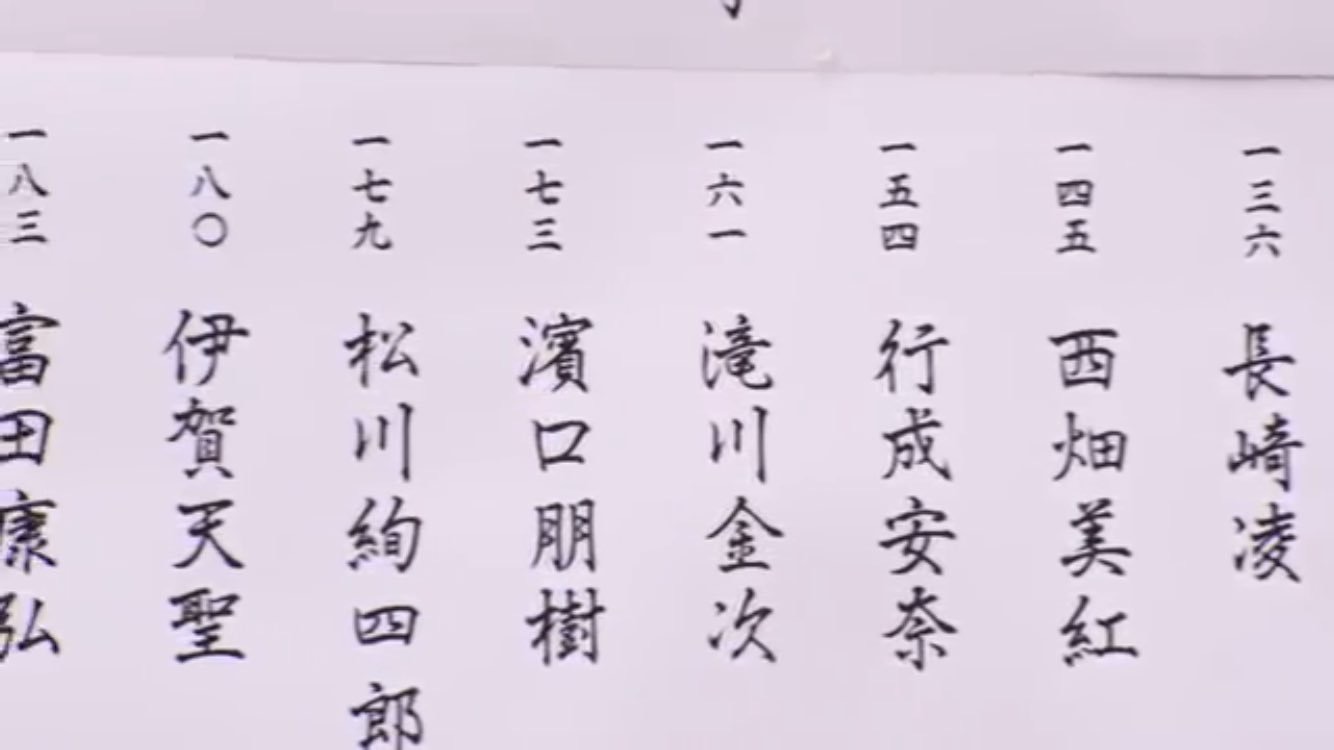 一三六 長崎凌
一四五 西畑美紅
一五四 行成安奈
一六一 滝川金次
一七三 濱口朋樹
一七九 松川絢四郎
一八〇 伊賀天聖
一八三 富田康弘